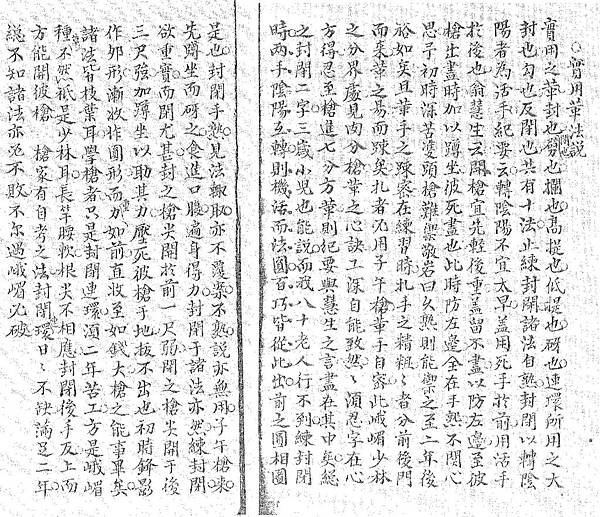 ○實用革法說
實用之革封也閉也攔也高提也低提也砑也連環所用之大
封也勾也反閉也共有十法止練封閉諸法自熟封閉以轉陰
陽者為活手紀要云轉陰陽不宜太早蓋用死手於前用活手
於後也翁慧生云開槍宜先輕後重蓋留不盡以防左邊至彼
槍出盡時加以蹲坐彼死盡也此時防左邊全在手熟不關心
思予初時深苦雙頭槍難禦敬岩曰久熟則能禦之至二年後
裕如矣且革手之疎密在練習時扎手之精粗〻者分前後門
而來革之易而疎矣扎者必用子午槍革手自密此峨嵋少林
之分界處見肉分槍革之心訣工深自能致然〻須忍字在心
方得忍至槍進七分方革則紀要與慧生之言盡在其中矣總
之封閉二字三歲小兒也能說而我八十老人行不到練封閉
時兩手陰陽互轉則機活而法圓百巧皆從此出前之圓相圖
是也封閉手熟見法輒取亦不覆染不熟說亦無用子午槍來
先蹲坐而砑之食進口臕遍身得力封閉于諸法亦然練封閉
欲重實而閉尤甚封之槍尖開於前一尺弱閉之槍尖開于後
三尺強加蹲坐以助其力壓死彼槍于地拔不出也初時斜影
作卵形漸收作圓形而力如前直收至如錢大槍之能事畢矣
諸法皆枝葉耳學槍者只是封閉連環須二年苦工方是峨嵋
種不然祗是少林耳長竿腰軟根尖不相應封閉後手反上而
方能開彼槍　槍家有自考之法封閉環日〻不缺滿足二年
總不知諸法亦必不敗不尔遇峨嵋必破